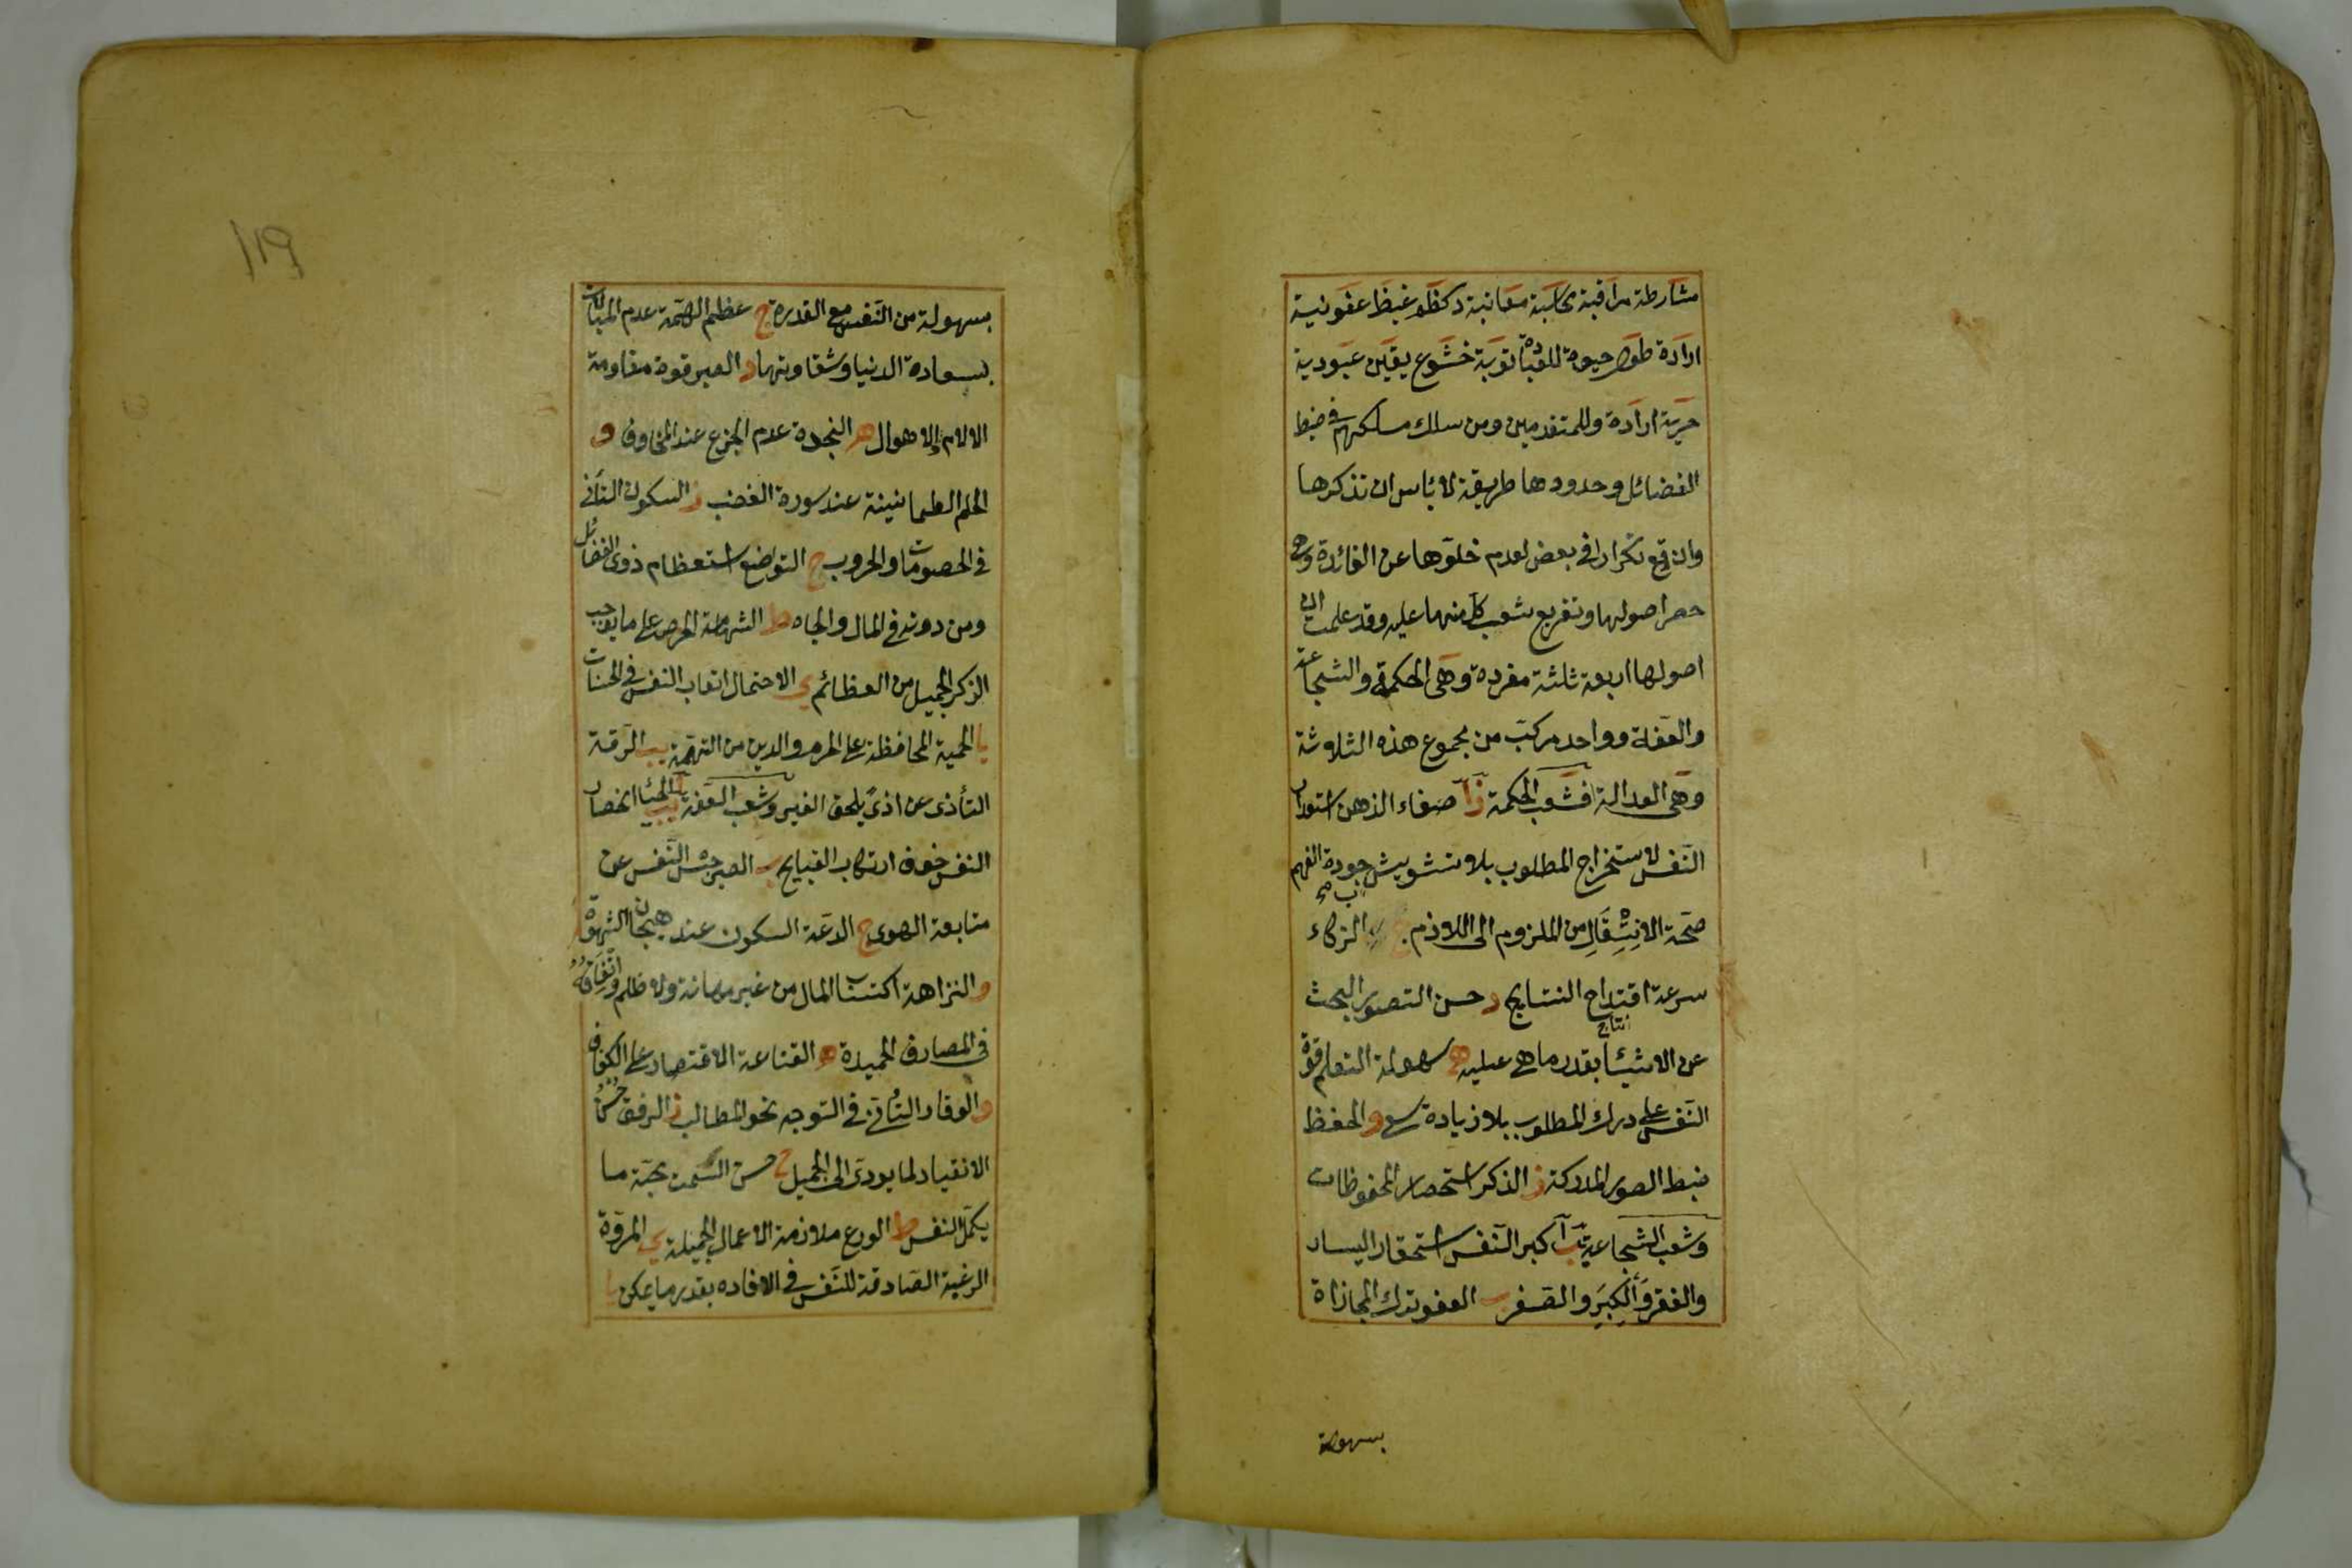 مشارطة مراقبة محاسبة معاتبة كظم غيظ عفو نية
ارادة طول حيوة للعبادة توبة خشوع يقين عبودية
حرية ارادة وللمتقدمين ومن سلك مسلكهم في ضبط
الفضائل وحدودها طريقة لا بأس ان نذكرها
وان وقع تكرار في بعض لعدم خلوها عن الفائدة وهي
حصر اصولها وتفريع شعب كل منها عليه وقد علمت ان
اصولها اربعة ثلثة مفردة وهي الحكمة والشجاعة
والعفة وواحد مركب من مجموع هذه الثلاثة
وهي العدالة فشعب الحكمة ز آ صفاء الذهن استعداد
النفس لاستخراج المطلوب بلا تشويش ب جودة الفهم
صحة الانتقال من الملزوم الى اللازم ج الزكاء
سرعة اقتداح النتايج د حسن التصور البحث
انتاج
عن الاشيئا بقدر ما هي عليه ه سهولة التعلم قوة
النفس على درك المطلوب بلا زيادة سعي و الحفظ
ضبط الصور المدركة ز الذكر استحضار المحفوظات
وشعب الشجاعة يب آ كبر النفس استحقار اليسار
والفقر والكبر والصغر ب العفو ترك المجازاة
بسهولة
١١٩
بسهولة من النفس مع القدرة ج عظم الهمة عدم المبالات
بسعادة الدنيا وشقاوتها د الصبر قوة مقاومة
الالام والاهوال ه النجدة عدم الجزع عند المخاوف و
الحلم الطمانينة عند سورة الغضب ز السكون التأني
في الخصومات والحروب ح التواضع استعظام ذوى الفضائل
ومن دونه في المال والجاه ط الشهامة الحرص على ما يوجب
الذكر الجميل من العظائم ي الاحتمال اتعاب النفس في الحسنات
يا الحمية المحافظة على الحرم والدين من التهمة يب الرقة
التأذى عن اذى يلحق الغير وشعب العفة يب آ الحيا انحصار
النفس خوف ارتكاب القبايح ب الصبر حبس النفس عن
متابعة الهوى ج الدعة السكون عند هيجان الشهوة
د النزاهة اكتساب المال من غير مهانة ولا ظلم وانفاقه
في المصارف الحميدة ه القناعة الاقتصار على الكفاف
و الوقار التأني في التوجه نحو المطالب ز الرفق حسن
الانقياد لما يودى الى الجميل ح حسن السمت محبة ما
يكمل النفس ط الورع ملازمة الاعمال الجميلة ي المروة
الرغبة الصادقة للنفس في الافاده بقدر ما يمكن يا